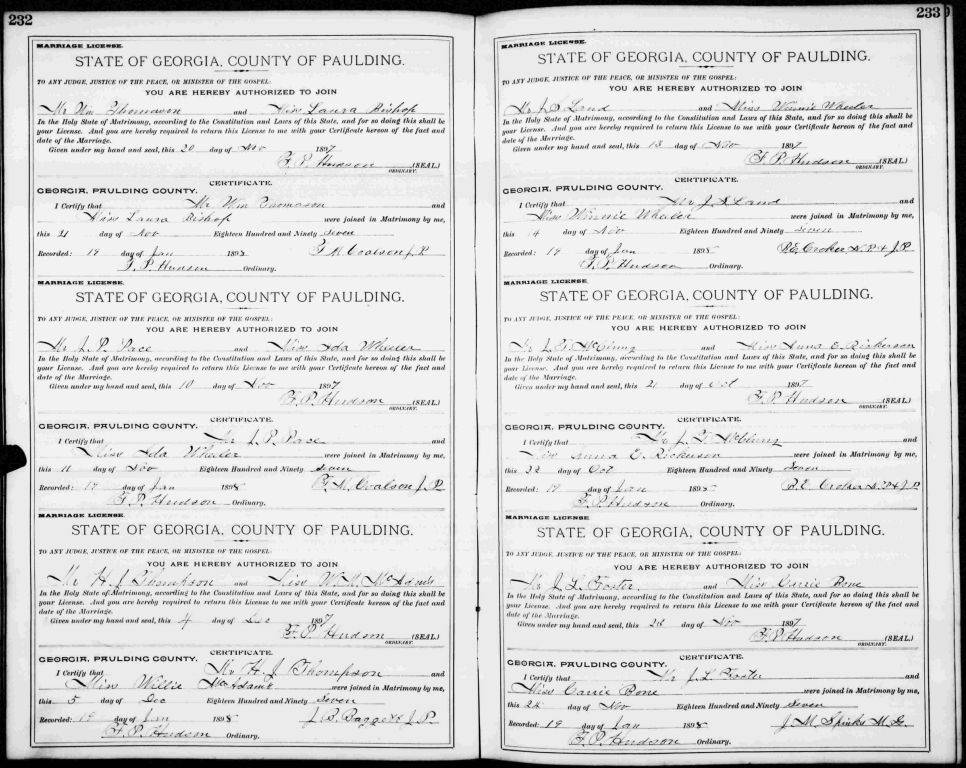 232
MARRIAGE LICENSE.
STATE OF GEORGIA, COUNTY OF PAULDING.
TO ANY JUDGE, JUSTICE OF THE PEACE, OR MINISTER OF THE GOSPEL:
YOU ARE HEREBY AUTHORIZED TO JOIN
Mr Wm Thomason and Miss Laura Bishop
In the Holy State of Matrimony, according to the Constitution and Laws of this State, and for so doing this shall be
your License. And you are hereby required to return this License to me with your Certificate hereon of the fact and
date of the Marriage.
Given under my hand and seal, this 20 day of Nov 1897
F. P. Hudson (SEAL)
ORDINARY.
CERTIFICATE.
GEORGIA, PAULDING COUNTY.
I Certify that Mr Wm Thomason and
Miss Laura Bishop were joined in Matrimony by me,
this 21 day of Nov Eighteen Hundred and Ninety seven
Recorded: 19 day of Jan 1898 M. Coalson J. P.
F. P. Hudson Ordinary.
MARRIAGE LICENSE.
STATE OF GEORGIA, COUNTY OF PAULDING.
TO ANY JUDGE, JUSTICE OF THE PEACE, OR MINISTER OF THE GOSPEL:
YOU ARE HEREBY AUTHORIZED TO JOIN
Mr L. P. Pace and Miss Ida Wheeler
In the Holy State of Matrimony, according to the Constitution and Laws of this State, and for so doing this shall be
your License. And you are hereby required to return this License to me with your Certificate hereon of the fact and
date of the Marriage.
Given under my hand and seal, this 10 day of Nov 1897
F. P. Hudson (SEAL)
ORDINARY.
CERTIFICATE.
GEORGIA, PAULDING COUNTY.
I Certify that Mr L. P. Pace and
Miss Ida Wheeler were joined in Matrimony by me,
this 11 day of Nov Eighteen Hundred and Ninety seven
Recorded: 19 day of Jan 1898 M. Coalson J. P.
F. P. Hudson Ordinary.
MARRIAGE LICENSE
STATE OF GEORGIA, COUNTY OF PAULDING.
TO ANY JUDGE, JUSTICE OF THE PEACE, OR MINISTER OF THE GOSPEL:
YOU ARE HEREBY AUTHORIZED TO JOIN
Mr H. J. Thompson and Miss W. M. McAdams
In the Holy State of Matrimony, according to the Constitution and Laws of this State, and for so doing this shall be
your License. And you are hereby required to return this License to me with your Certificate hereon of the fact and
date of the Marriage.
Given under my hand and seal, this 4 day of Dec 1897
F. P. Hudson (SEAL)
ORDINARY.
CERTIFICATE.
GEORGIA, PAULDING COUNTY.
I Certify that Mr H. J. Thompson and
Miss Willie McAdams were joined in Matrimony by me,
this 5 day of Dec Eighteen Hundred and Ninety Seven
Recorded: 19 day of Jan 1898 J. S. Baggett J. P.
F. P. Hudson Ordinary.
233
MARRIAGE LICENSE.
STATE OF GEORGIA, COUNTY OF PAULDING.
TO ANY JUDGE, JUSTICE OF THE PEACE, OR MINISTER OF THE GOSPEL:
YOU ARE HEREBY AUTHORIZED TO JOIN
Mr J. S. Land and Miss Winnie Wheeler
In the Holy State of Matrimony, according to the Constitution and Laws of this State, and for so doing this shall be
your License. And you are hereby required to return this License to me with your Certificate hereon of the fact and
date of the Marriage.
Given under my hand and seal, this 13 day of Nov 1897
F. P. Hudson (SEAL)
ORDINARY.
CERTIFICATE.
GEORGIA, PAULDING COUNTY.
I Certify that Mr J. S. Land and
Miss Winnie Wheeler were joined in Matrimony by me,
this 14 day of Nov Eighteen Hundred and Ninety seven
Recorded: 19 day of Jan 1898 B. E. Croker N. P. & J. P.
F. P. Hudson Ordinary.
MARRIAGE LICENSE.
STATE OF GEORGIA, COUNTY OF PAULDING.
TO ANY JUDGE, JUSTICE OF THE PEACE, OR MINISTER OF THE GOSPEL:
YOU ARE HEREBY AUTHORIZED TO JOIN
Mr McGinnis and Miss Anna E. Rickerson
In the Holy State of Matrimony, according to the Constitution and Laws of this State, and for so doing this shall be
your License. And you are hereby required to return this License to me with your Certificate hereon of the fact and
date of the Marriage.
Given under my hand and seal, this 21 day of Oct 1897
F. P. Hudson (SEAL)
ORDINARY.
CERTIFICATE.
GEORGIA, PAULDING COUNTY.
I Certify that Mr McGinnis and
Miss Anna E. Rickerson were joined in Matrimony by me,
this 22 day of Oct Eighteen Hundred and Ninety Seven
Recorded: 19 day of Jan 1898 B. E. Croker N. P. & J. P.
F. P. Hudson Ordinary.
MARRIAGE LICENSE
STATE OF GEORGIA, COUNTY OF PAULDING.
TO ANY JUDGE, JUSTICE OF THE PEACE, OR MINISTER OF THE GOSPEL:
YOU ARE HEREBY AUTHORIZED TO JOIN
Mr J. L. Foster and Miss Carrie Bone
In the Holy State of Matrimony, according to the Constitution and Laws of this State, and for so doing this shall be
your License. And you are hereby required to return this License to me with your Certificate hereon of the fact and
date of the Marriage.
Given under my hand and seal, this 28 day of Nov 1897
F. P. Hudson (SEAL)
ORDINARY.
CERTIFICATE.
GEORGIA, PAULDING COUNTY.
I Certify that Mr J. L. Foster and
Miss Carrie Bone were joined in Matrimony by me,
this 28 day of Nov Eighteen Hundred and Ninety seven
Recorded: 19 day of Jan 1898 J. M. Spinks M. G.
F. P. Hudson Ordinary.